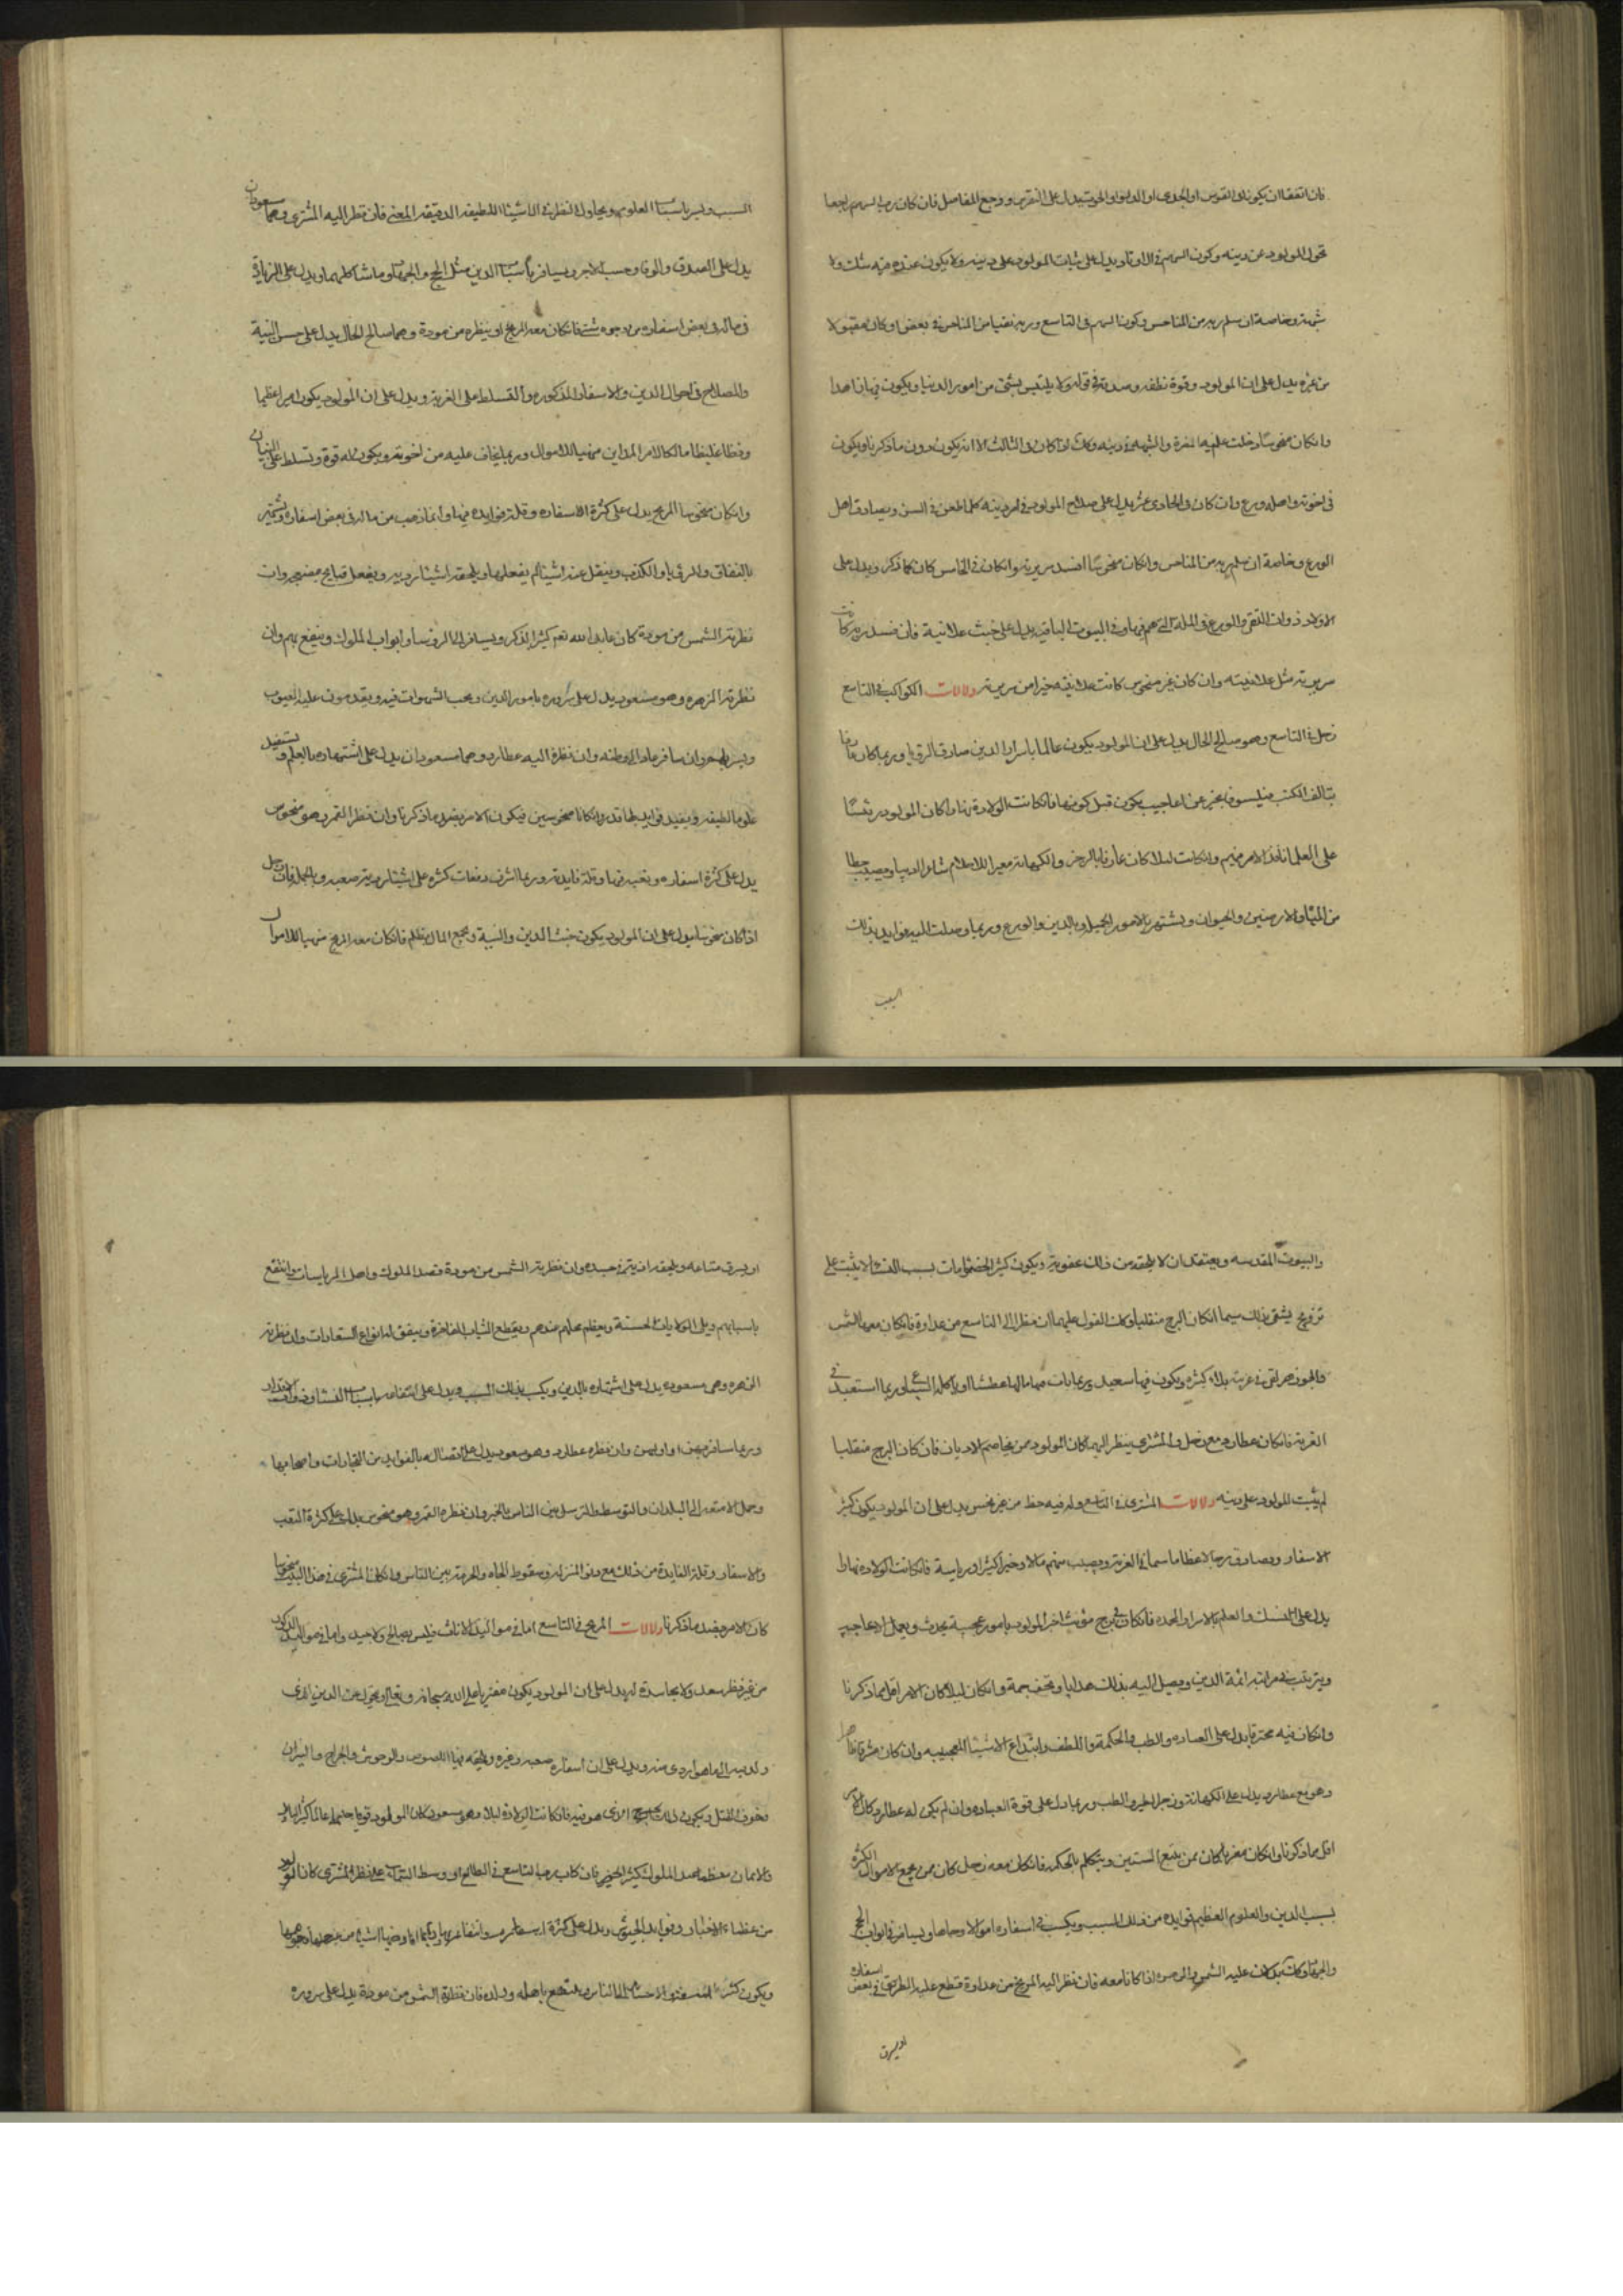 فان اتفقا ان يكونا في القوس او الجدي او الدلو او الحوت يدل على النقرس ووجع المفاصل فان كان رب السهم راجعا
تحول المولود عن دينه وكون السهم في الاوتاد يدل على ثبات المولود على دينه ولا يكون عنده فيه شك ولا
شبهة وخاصة ان سلم ربه من المناحس وكون السهم في التاسع وربه نقيا من المناحس في بعض او كان مقبولا
من غيره يدل على ان المولود وقوة نطقه وصدقه في قوله ولا يلتبس بشئ من امور الدنيا ويكون فيها زاهدا
وان كان منحوسا دخلت عليه المضرة والشبهة في دينه وكذلك اذا كان في الثالث الا انه يكون دون ما ذكرنا ويكون
في اخوته واصله ورع وان كان في الحادي عشر يدل على صلاح المولود في امر دينه كلما طعن في السن ويصادق اهل
الورع وخاصة ان سلم ربه من المناحس وان كان منحوسا افسد سريرته وان كان في الخامس كان كما ذكر ويدل على
الاولاد ذوات التقى والورع في الملة التي هم فيها وفي البيوت الباقية يدل على خبث علانية فان فسد ربه كانت
سريرته مثل علانيته وان كان غير منحوس كانت علانيته خيرا من سريرته دلالات الكواكب في التاسع
زحل في التاسع وهو صالح الحال يدل على ان المولود يكون عالما باسرار الدين صادق الرؤيا وربما كان عارفا
بتالف الكتب فيلسوف يخبر عن اعاجيب يكون قبل كونها فان كانت الولادة نهارا كان المولود رئيسا
على العلما نافذ الامر فيهم وان كانت ليلا كان عارفا بالزجر والكهانة معبرا للاحلام شاعرا اديبا ويصيب حظا
من المياه والارضين والحيوان ويشتهر بالامور الجميلة وبالدين والورع وربما وصلت اليه فوايد بذلك
السبب
السبب ويسر باسباب العلوم ويحاول النظر في الاشيا اللطيفة الدقيقة المعنى فان نظر اليه المشتري وهما مسعودان
يدل على الصدق والوفا وحسب الاجر ويسافر باسباب الدين مثل الحج والجهاد وما شاكلهما ويدل على الزيادة
في ماله في بعض اسفاره من وجوه شتى فان كان معه المريخ او ينظره من مودة وهما صالح الحال يدل على حسن النية
والصلاح في احوال الدين والاسفار المذكورة والتسلط على الغربة ويدل على ان المولود يكون اميرا عظيما
وفظا غليظا مالكا لامر المداين منهبا للاموال وربما يخاف عليه من اخوته ويكون له قوة وتسلط على البنيان
وان كان منحوسا المريخ يدل على كثرة اسفاره وقلة فوايده فيها وانما ذهب من ماله في بعض اسفاره ويشتهر
بالنفاق والريا والكذب وينقل عنه اشيا لم يفعلها ويلحقه اشيا ردية ويفعل قبايح منفضحة وان
نظرته الشمس من مودة كان عابدا لله نعم كثير الذكر ويسافر الى الروسا وابواب الملوك وينفع بهم وان
نظرته الزهرة وهو مسعود يدل على سروره بامور الدين ويحب الشهوات فيه ويقدمون عليه الغيوب
ويسر بهم وان سافر عاد الى وطنه وان نظرة اليه عطارد وهما مسعودان يدل على اشتهاره بالعلم ويستفيد
علوما لطيفة ويفيد فوايد بطاقة وان كانا منحوسين فيكون الامر بضد ما ذكرنا وان نظر القمر وهو منحوس
يدل على كثرة اسفاره وتعبه فيها وقلة فايدته وربما اشرف دفعات كثيرة على اشيا ردية صعبة وبالجملة فان زحل
اذا كان منحوسا يدل على ان المولود يكون خبيث الدين والنية ويجمع المال بظلم فان كان معه المريخ منهبا للاموال
والبيوت المقدسة ويعتقد ان لا يلحقه من ذلك عقوبة ويكون كثير الخصومات بسبب النساء لا يثبت على
تزويج يشقى بذلك سيما ان كان البرج منقلبا وكذلك القول عليهما ان نظرا الى التاسع من عداوة فان كان معهما الشمس
والجوزهر لقى في غربته بلاء كثيرة ويكون فيها سعيد وربما مات فيها مالها عطشا او ياكله السباع او ربما استعبد في
الغربة فان كان عطارد مع زحل والمشتري ينظر اليهما كان المولود ممن يخاصم الاديان فان كان البرج منقلبا
لم يثبت المولود على دينه دلالات المشتري في التاسع وله فيه حظ من غير نحس يدل على ان المولود يكون كثير
الاسفار ويصادق رجالا عظاما سيما في الغربة ويصيب منهم مالا وخيرا كثيرا ورياسة فان كانت الولادة نهارا
يدل على النسك والعلم بالاسرار الحمده فان كان في برج مؤنث اخبر المولود بامور عجيبة تحدث ويعمل الاعاجيب
ويترتب في مراتب ائمة الدين ويصل اليه بذلك هدايا وتحف جمة وان كان ليلا كان الامر اقل مما ذكرنا
وان كان فيه محترقا يدل على العباده والطب والحكمة واللطف وابتداع الاشيا العجيبه وان كان مشرقا خاصا
وهو مع عطارد يدل على الكهانة وزجر الطير والطب وربما دل على قوة العباده وان لم يكن له عطارد كان الامر
اقل مما ذكرنا وان كان مغربا كان ممن يتبع السنين ويتكلم بالحكمة فان كان معه زحل كان ممن يجمع الاموال الكثيرة
بسبب الدين والعلوم العظيم فوايده من ذلك السبب ويكسب في اسفاره اموالا وجاها ويسافر في ابواب الحج
والجهاد وكذلك يدل ان عليه الشمس والزهره اذا كانا معه فان نظر اليه المريخ من عداوة قطع عليه الطريق في بعض اسفاره
او يسرق
او يسرق متاعه ويلحقه اذيته في جسده وان نظرته الشمس من مودة قصد الملوك واهل الرياسات وانتفع
باسبابهم ويلى الولايات الحسنة ويعظم محله عندهم ويقطع الثياب الفاخرة ويتفق له انواع السعادات وان نظرته
الزهره وهى مسعوده يدل على اشتهاره بالدين ويكسب بذلك السبب ويدل على انتفاعه باسباب النساء
وربما سافر بهن او اليهن وان نظره عطارد وهو مسعود يدل على اتصاله بالفوايد من التجارات واصحابها
وحمل الامتعه الى البلدان والتوسط والترسل بين الناس بالخير وان نظره القمر وهو منحوس يدل على كثرة التعب
والاسفار وقلة الفايدة من ذلك مع دنو المنزله وسقوط الجاه والحرمة بين الناس وان كان المشترى في هذا البيت منحوسا
كان الامر بضد ما ذكرنا دلالات المريخ في التاسع اما في مواليد الاناث فليس بصالح ولا جيد واما في مواليد الذكور
من غير نظر سعد ولا مجاسدة له يدل على ان المولود يكون مفتريا على الله سبحانه وتعالى ويتحول عن الدين الذي
ولد فيه الى ما هو اردى منه ويدل على ان اسفاره صعبه وغيره ويلحقه فيها اللصوص والوحوش والجراح والنيران
وخوف القتل ويكون ذلك البرج الذي هو فيه فان كانت الولادة ليلا وهو مسعود كان المولود قويا حليما عالما كثير البلاد
والايمان معظما عند الملوك كثير الخير فان كان رب التاسع في الطالع او وسط السماء على نظر المشتري كان المولود
من عظماء الاخيار وفوايد الجيوش ويدل على كثرة
ويكون كثير الاحسان الى الناس وينتفع باهله وولده فان نظرته الشمس من مودة يدل على سروره